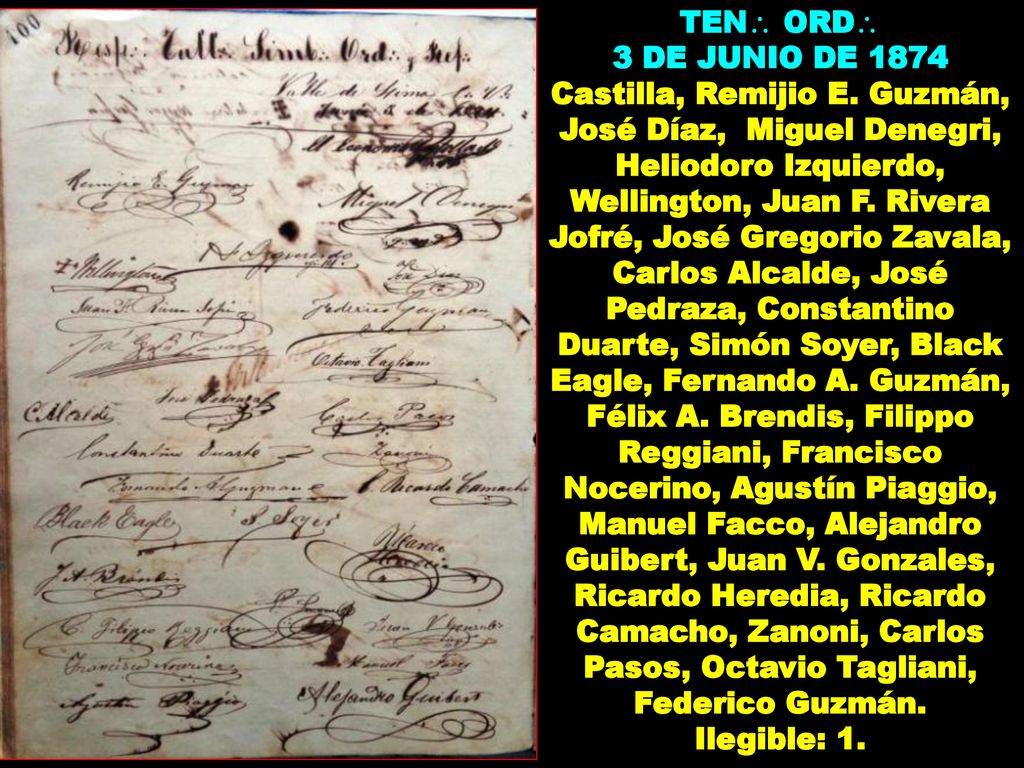 100
Resp∴ Tall∴ Simb∴ Ord∴ y Ref∴
Valle de Lima
Junio 3 de
Remijio E. Guzman
Miguel Denegri
H Izquierdo
Wellington
José Diaz
Juan F. Rivera Jofré
Federico Guzman
José Zavala
Octavio Tagliani
José Pedraza
C. Alcalde
Pasos
Constantino Duarte
Zanoni
Fernando A Guzman
C. Ricardo Camacho
Black Eagle
S. Soyer
Ricardo Heredia
Brendis
C. Filippo Reggiani
Juan V Gonzales
Francisco Nocerino
Manuel Facco
Agustin Piaggio
Alejandro Guibert
TEN∴ ORD∴
3 DE JUNIO DE 1874
Castilla, Remijio E. Guzmán,
José Díaz, Miguel Denegri,
Heliodoro Izquierdo,
Wellington, Juan F. Rivera
Jofré, José Gregorio Zavala,
Carlos Alcalde, José
Pedraza, Constantino
Duarte, Simón Soyer, Black
Eagle, Fernando A. Guzmán,
Félix A. Brendis, Filippo
Reggiani, Francisco
Nocerino, Agustín Piaggio,
Manuel Facco, Alejandro
Guibert, Juan V. Gonzales,
Ricardo Heredia, Ricardo
Camacho, Zanoni, Carlos
Pasos, Octavio Tagliani,
Federico Guzmán.
Ilegible: 1.